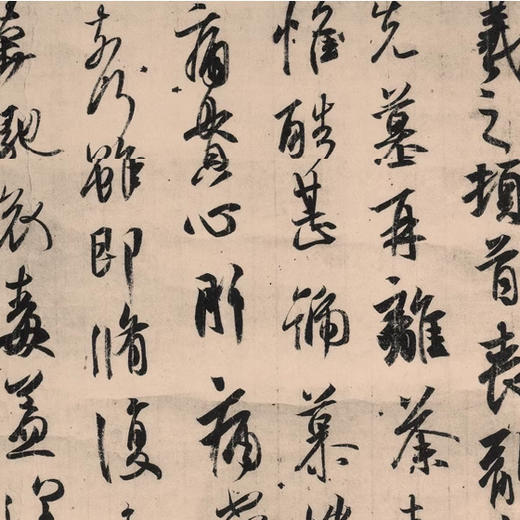 羲之頓首喪亂
先墓再離荼
惟酷甚號慕
痛貫心肝痛
奈何雖即脩復
奔馳哀毒益深